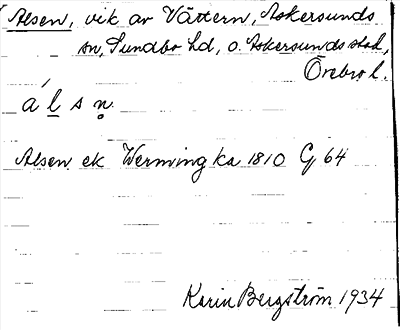 Alsen, vik av Vättern, Askersunds
sn, Sundbo hd, o. Askersunds stad,
Örebro l.
a´l̲ s n̥
Alsen ek Werming ka 1810 G 64
Karin Bergström 1934